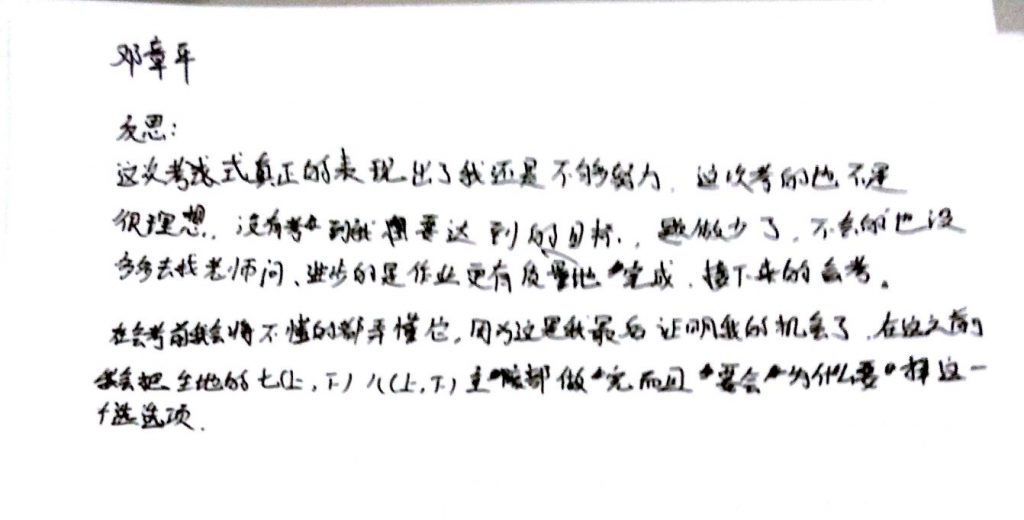 邓章平
反思:
这次考试式真正的表现出了我还是不够努力,这次考的也不是
很理想,没有考到我想要达到的目标,题做少了,不会的也没
多多去找老师问、进步的是作业更有质量地完成,接下来的会考。
在会考前我会将不懂的都弄懂它,因为这是我最后证明我的机会了,在这之前
我会把生地的七(上,下)八(上,下)都做完而且要会为什么要择这一
个选选项.